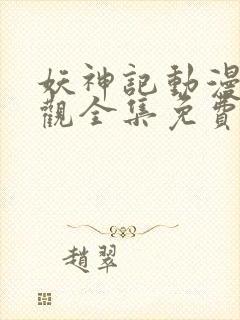 妖神記動漫
觀全集免費
趙翠